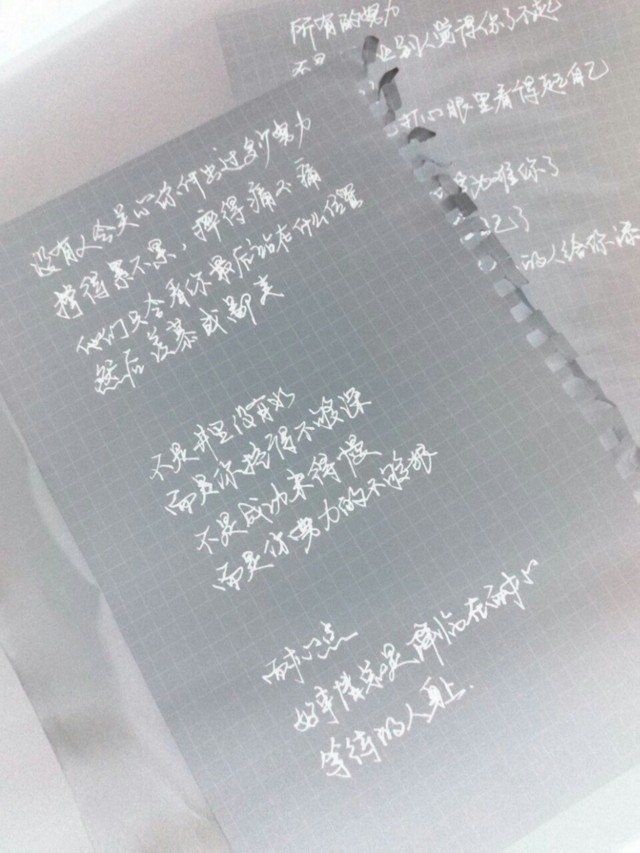 所有的努力
让别人觉得你了不起
打心眼里看得起自己
为难你了
的人给你添
没有人会关心你付出过多少努力
撑得累不累，摔得痛不痛
他们只会看你最后站在什么位置
然后羡慕或鄙夷
不是井里没有水
而是你挖得不够深
不是成功来得慢
而是你努力的不够狠
耐心点
好事情总是降临在耐心
等待的人身上.